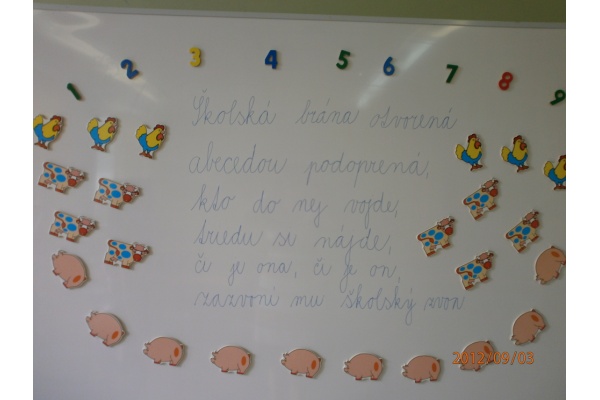 1 2 3 4 5 6 7 8 9
Školská brána otvorená
abecedou podoprená,
kto do nej vojde,
triedu si nájde,
či je ona, či je on,
zazvoní mu školský zvon
2012/09/03